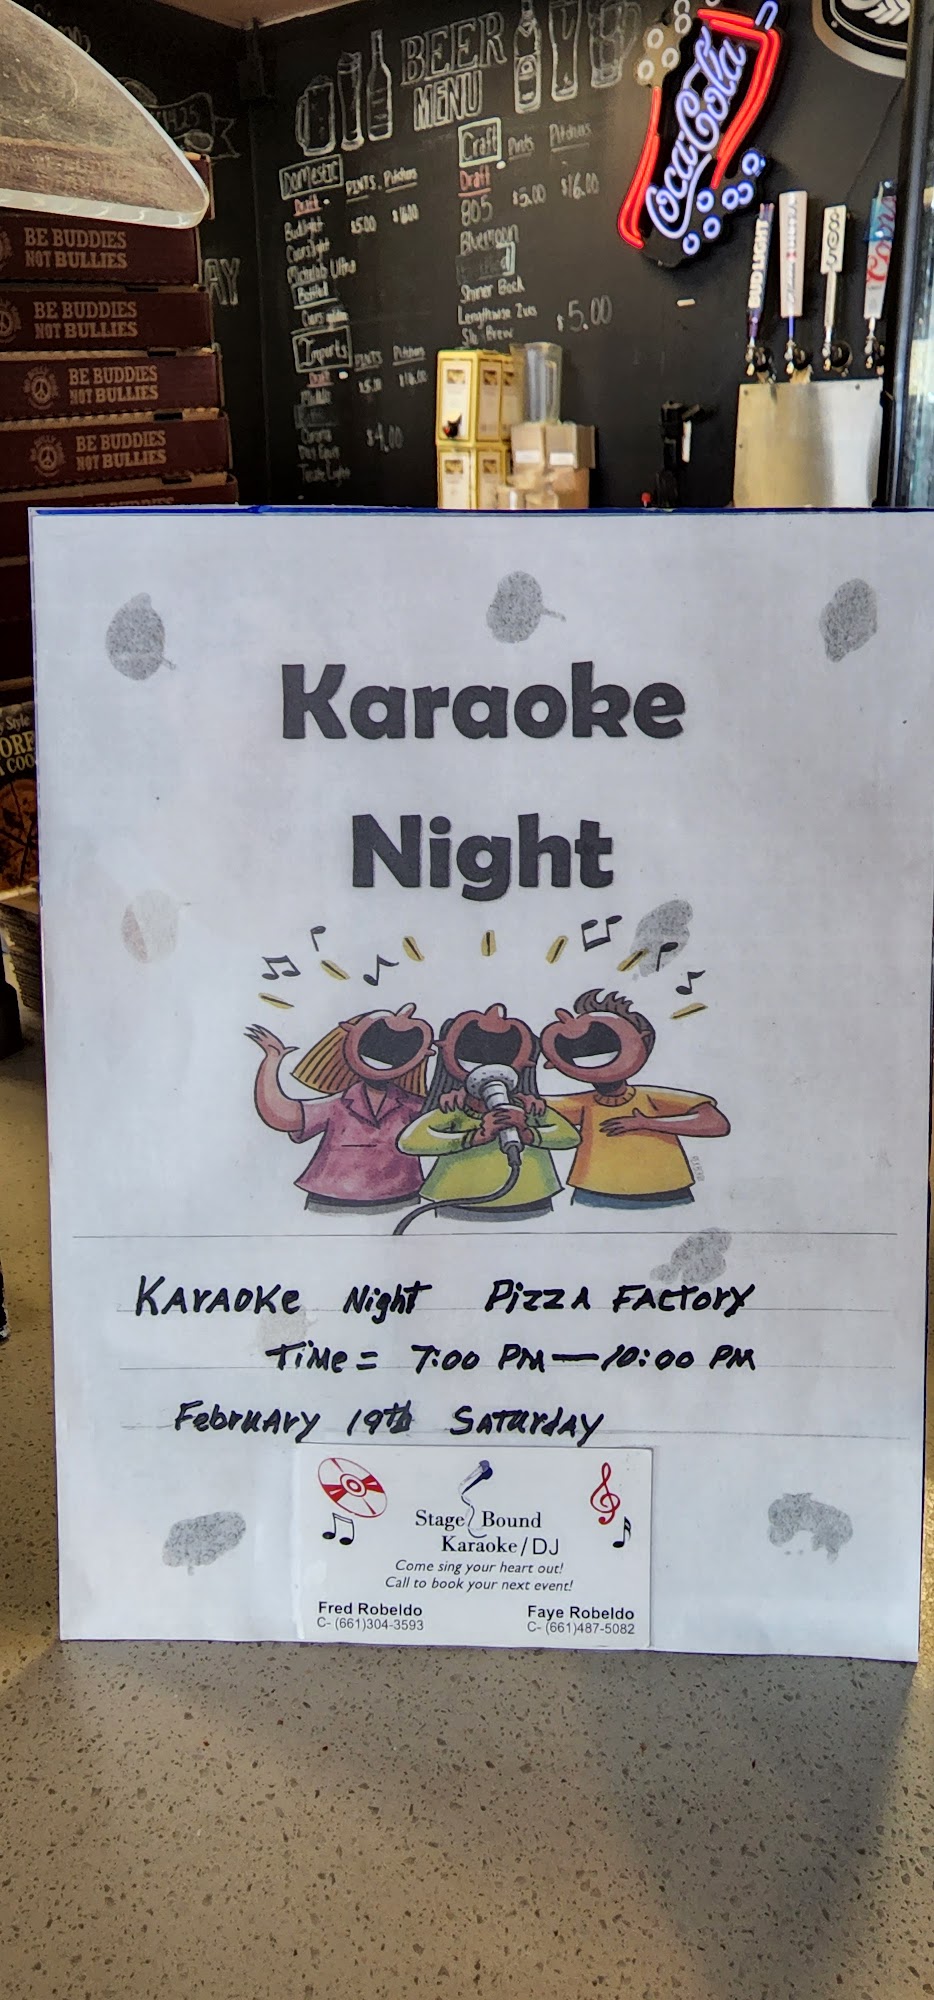 BEER
MENU
Domestic
PINTS Pitchers
Draft
$5.00 $16.00
Budlight
Coorslight
Michelob Ultra
Bottled
Imports
PINTS Pitchers
Draft
$5.00 $16.00
Corona
$4.00
Craft Pints Pitchers
Draft
805 $5.00 $16.00
Bluemoon
Shiner Bock
$5.00
Coca-Cola
BUD LIGHT
Coors
BE BUDDIES
NOT BULLIES
BE BUDDIES
NOT BULLIES
BE BUDDIES
NOT BULLIES
BE BUDDIES
NOT BULLIES
BE BUDDIES
Karaoke
Night
Karaoke Night Pizza Factory
Time = 7:00 PM — 10:00 PM
February 19th Saturday
Stage Bound
Karaoke/DJ
Come sing your heart out!
Call to book your next event!
Fred Robeldo Faye Robeldo
C- (661)304-3593 C- (661)487-5082